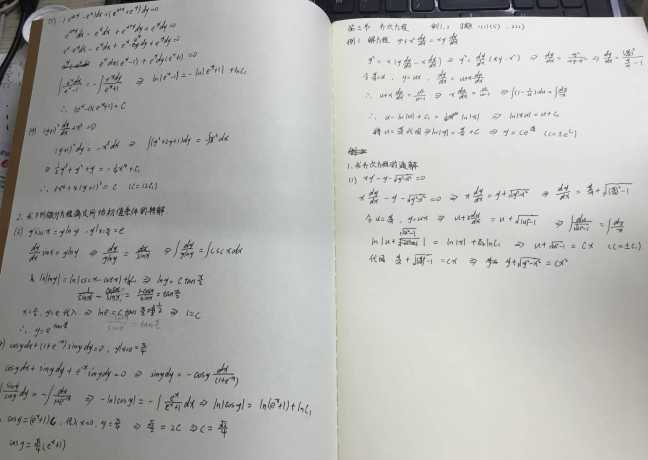 (7) (e^{x+y}-e^x)dx+(e^{x+y}+e^y)dy=0
e^{x+y}dx-e^xdx+e^{x+y}dy+e^ydy=0
e^x·e^ydx-e^xdx+e^xe^ydy+e^ydy=0
e^xdx(e^y-1)+e^ydy(e^x+1)=0
⇒ ln|e^y-1|=-ln|e^x+1|+lnC₁
∴ (e^x+1)(e^y-1)=C
(9) (y+1)²dy/dx+x³=0
(y+1)²dy=-x³dx ⇒ ∫(y²+2y+1)dy=∫-x³dx
⇒ ⅓y³+y²+y=-¼x⁴+C₁
∴ 3x⁴+4(y+1)³=C (C=12C₁)
2. 求下列微分方程满足所给初值条件的特解
(2) y'sinx=ylny y|x=π/2=e
dy/dx sinx=ylny ⇒ dy/ylny=dx/sinx ⇒ ∫dy/ylny=∫cscxdx
ln|lny|=ln|cscx-cotx|+lnC₁ ⇒ lny=C tan x/2
1/sinx-cosx/sinx=1-cosx/sinx=tan x/2
x=π/2, y=e 代入 ⇒ lne=C·tan ⇒ 1=C
∴ y=e^{tan x/2}
cosydx+(1+e^{-x})sinydy=0, y|x=0=π/4
cosydx+sinydy+e^{-x}sinydy=0 ⇒ sinydy=-cosy dx/(1+e^{-x})
∫siny/cosy dy=-∫dx/1+e^{-x} ⇒ -ln|cosy|=-∫e^x/e^x+1 dx ⇒ ln|cosy|=ln(e^x+1)+lnC₁
cosy=(e^x+1)C, 代入x=0, y=π/4 ⇒ √2/2=2C ⇒ C=√2/4
cosy=√2/4(e^x+1)
第三节 齐次方程
例1 解方程 y²+x²dy/dx=xy dy/dx
y²=x(y dy/dx-x dy/dx) ⇒ y²=dy/dx(xy-x²) ⇒ dy/dx=y²/xy-x² ⇒ dy/dx=(y/x)²/(y/x-1)
令u=y/x, y=ux, dy/dx=u+x du/dx
∴ u+x du/dx=u²/u-1 ⇒ x du/dx=u/u-1 ⇒ ∫(1-1/u)du=∫dx/x
∴ u-ln|u|+C₁=ln|x| ⇒ ln|xu|=u+C₁
将u=y/x代回 ⇒ ln|y|=y/x+C₁ ⇒ y=Ce^{y/x} (C=±e^{C₁})
1. 求齐次方程的通解
(1) xy'-y-√y²-x²=0
x dy/dx-y-√y²-x²=0 ⇒ x dy/dx=y+√y²-x² ⇒ dy/dx=y/x+√(y/x)²-1
令u=y/x, y=ux ⇒ u+x du/dx=u+√u²-1 ⇒ ∫du/√u²-1=∫dx/x
ln|u+√u²-1|=ln|x|+lnC₁ ⇒ u+√u²-1=Cx (C=±C₁)
代回 y/x+√(y/x)²-1=Cx ⇒ y+√y²-x²=Cx²